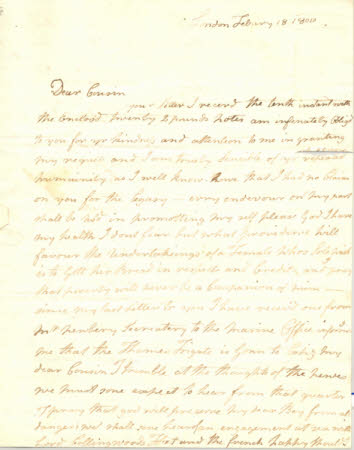 London Febury 18 1800
Dear Cousin
your letter I receved the tenth instant with
the enclosd twenty 2 pounds notes am infenately obligd
to you for yr kindness and attention to me in granting
my request and I am truly sencible of yr repeated
as I well know that I had no claim
on you for the legacy — every endevour on my part
shall be in promotting my self please God I have
my health I dont fear but what providence will
favour the undertakeings of a Female whos
is to Gett her Bread in respect and Credit, and pray
that poverty will never be a Companion of mine —
since my last letter to you I have receved one from
Mr Newbery Secreatery to the Marine Office
me that the Thames Frigate is Goun to
dear Cousin I tremble at the thoughts of the newes
we must sone expect to hear from that quarter
I pray that god will preserve my dear Boy from all
dangers we shall sone hear of an engagement at sea with
Lord Collingwoods and the french happy should I